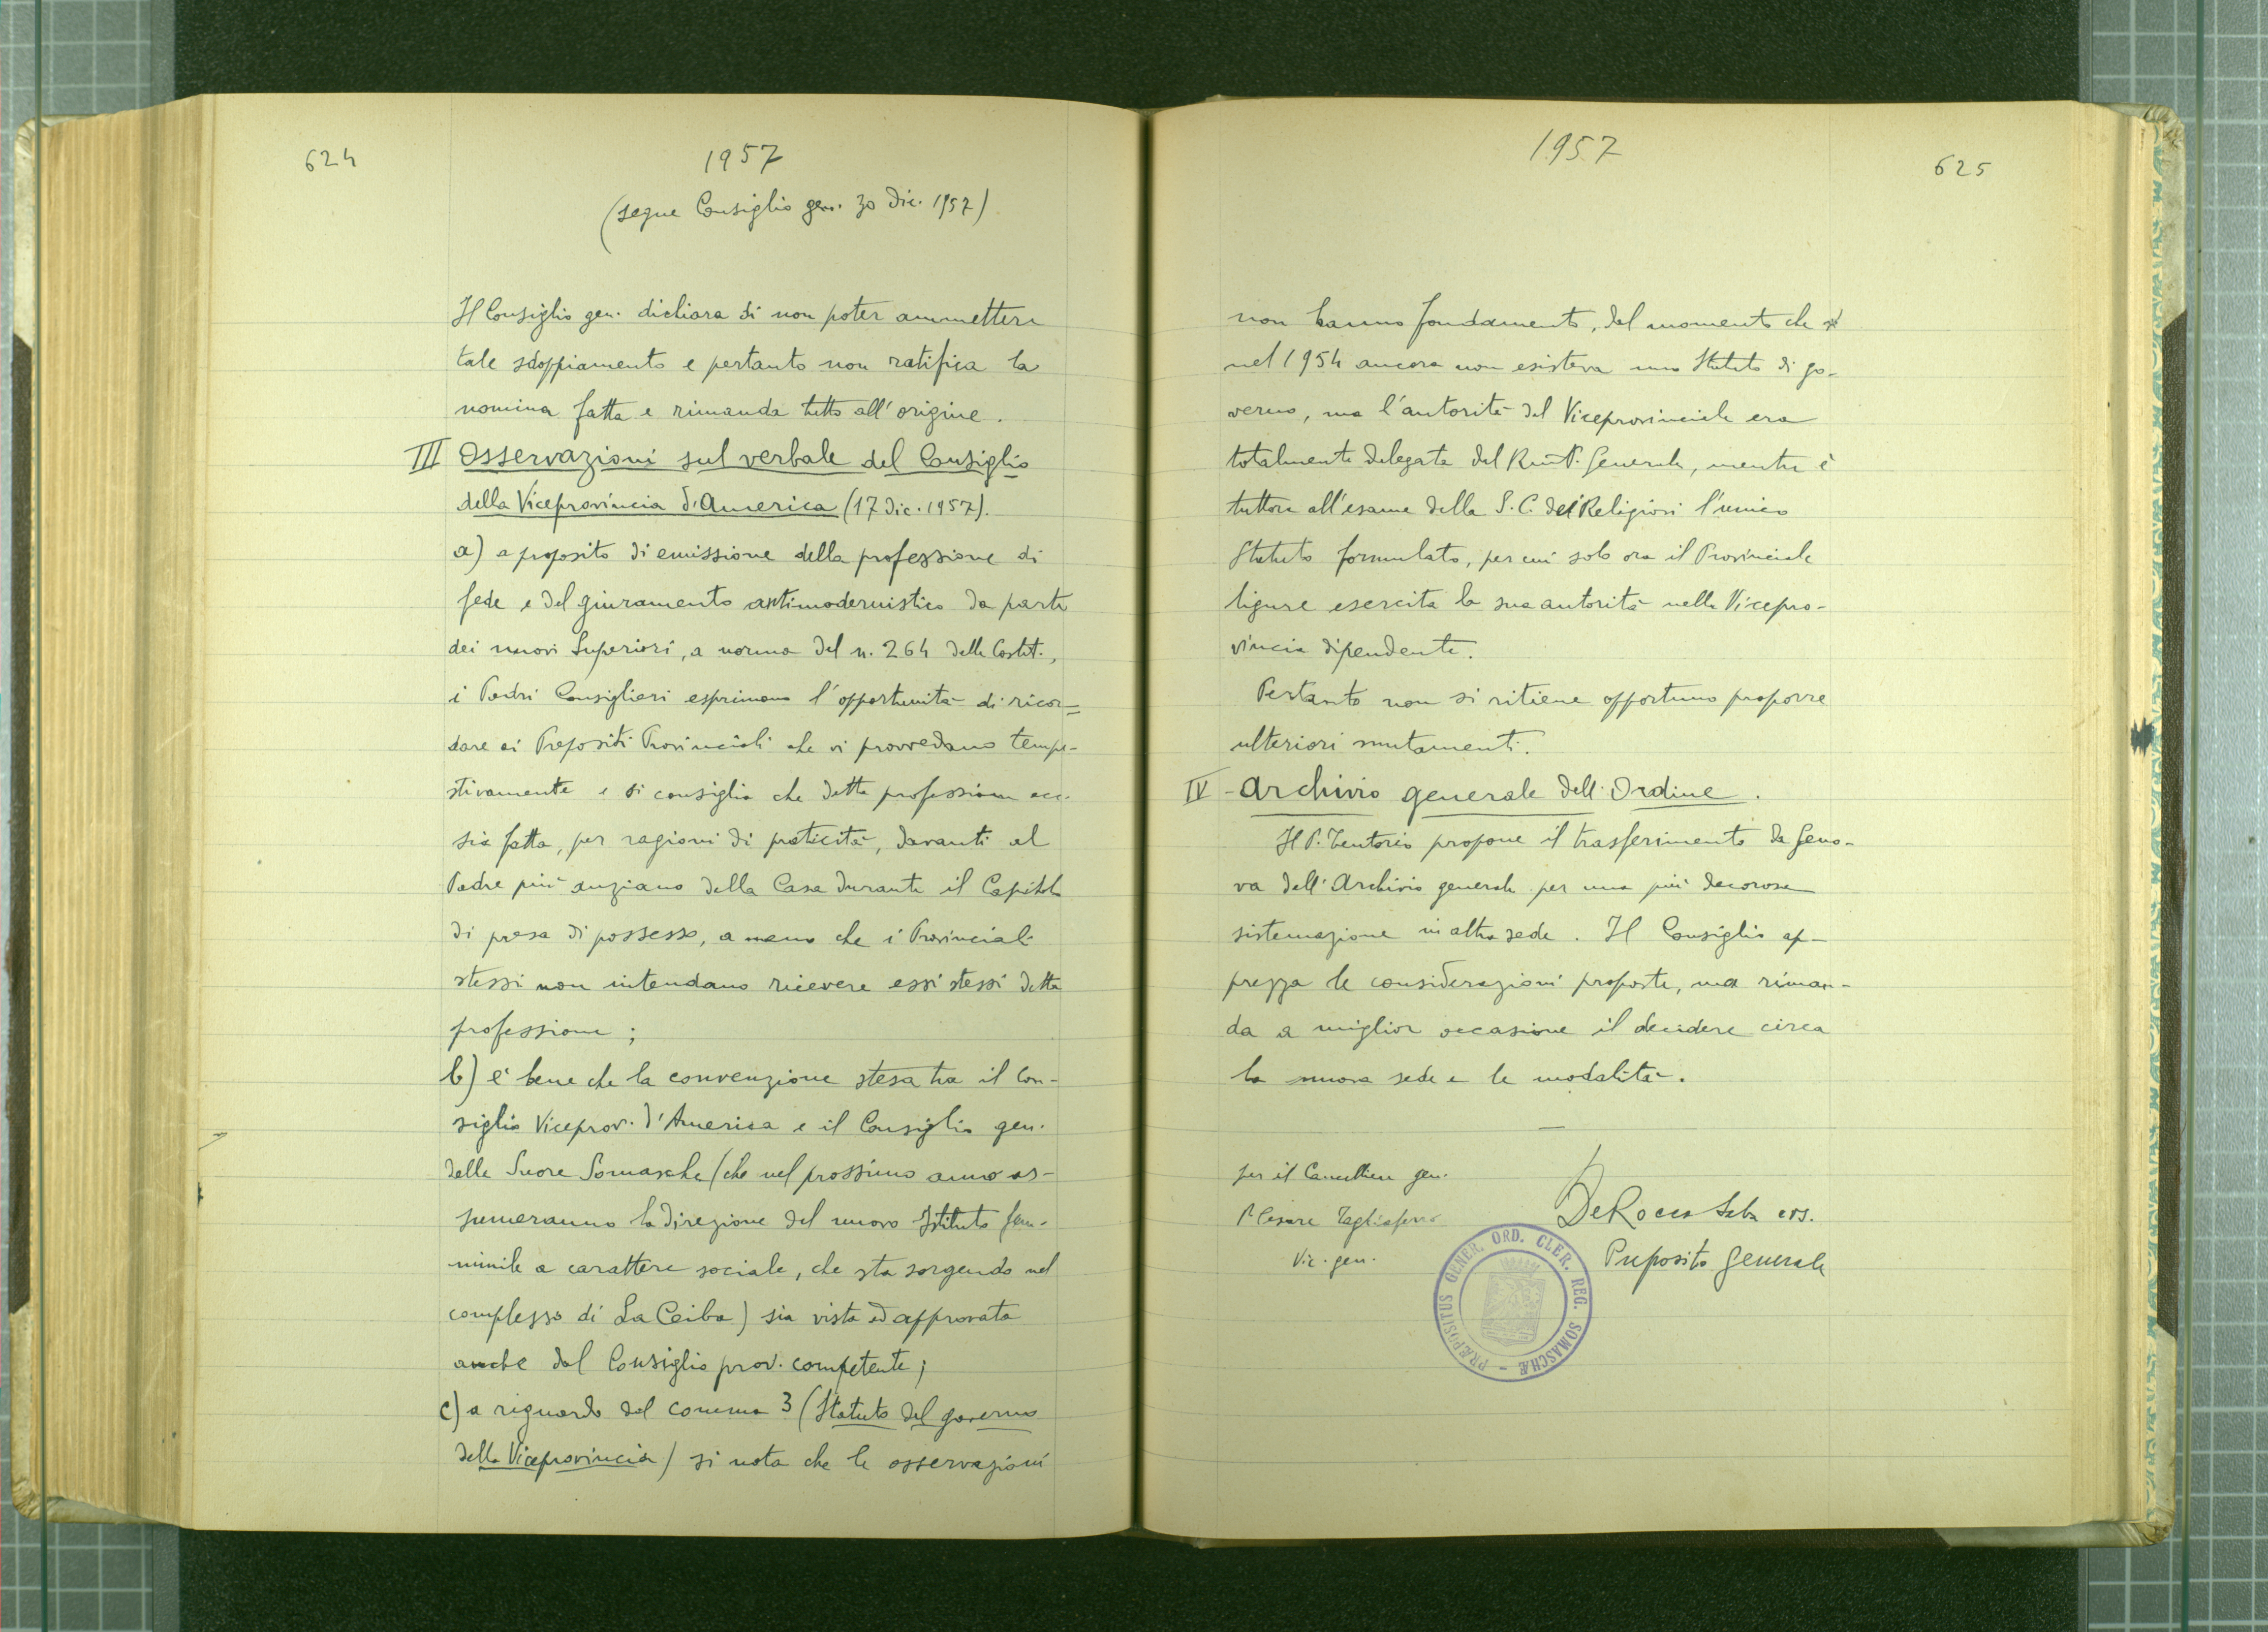 624
1957
(segue Consiglio gen. 30 Dic. 1957)
Il Consiglio gen. dichiara di non poter ammettere
tale sdoppiamento e pertanto non ratifica la
nomina fatta e rimanda tutto all'origine.
III Osservazioni sul verbale del Consiglio
della Viceprovincia d'America (17 Dic. 1957).
a) a proposito di emissione della professione di
fede e del giuramento antimodernistico da parte
dei nuovi Superiori, a norma del n. 264 delle Costit.,
i Padri Consiglieri esprimono l'opportunità di ricor=
dare ai Prepositi Provinciali che vi provvedano tempe-
stivamente e si consiglia che detta professione ecc.
sia fatta, per ragioni di praticità, davanti al
Padre più anziano della Casa durante il Capitolo
di presa di possesso, a meno che i Provinciali
stessi non intendano ricevere essi stessi detta
professione;
b) è bene che la convenzione stesa tra il Con-
siglio Viceprov. d'America e il Consiglio gen.
delle Suore Somasche (che nel prossimo anno as-
sumeranno la direzione del nuovo Istituto fem-
minile a carattere sociale, che sta sorgendo nel
complesso di La Ceiba) sia vista ed approvata
anche dal Consiglio prov. competente;
c) a riguardo del comma 3 (Statuto del governo
della Viceprovincia) si nota che le osservazioni
1957
625
non hanno fondamento, dal momento che
nel 1954 ancora non esisteva uno Statuto di go-
verno, ma l'autorità del Viceprovinciale era
totalmente delegata dal Rev.mo P. Generale, mentre è
tuttora all'esame della S. C. dei Religiosi l'unico
Statuto formulato, per cui solo ora il Provinciale
ligure esercita la sua autorità nella Vicepro-
vincia dipendente.
Pertanto non si ritiene opportuno proporre
ulteriori mutamenti.
IV - Archivio generale dell'Ordine.
Il P. Tentorio propone il trasferimento da Geno-
va dell'Archivio generale per una più decorosa
sistemazione in altra sede. Il Consiglio ap-
prezza le considerazioni proposte, ma riman-
da a miglior occasione il decidere circa
la nuova sede e le modalità.
per il Cancelliere gen.
P. Cesare Tagliaferro
Vic. gen.
De Rocco Saba crs.
Preposito Generale
PRÆPOSITUS GENER. ORD. CLER. REG. SOMASCHÆ